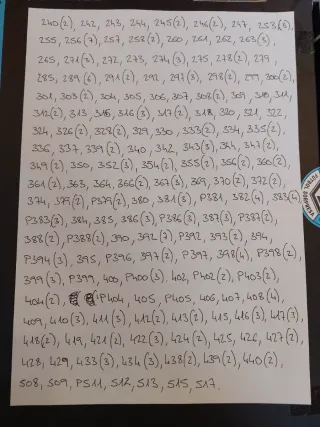 240(2), 242, 243, 244, 245(2), 246(2), 247, 253(6),
255, 256(7), 257, 258(2), 260, 261, 262, 263(3),
265, 271(3), 272, 273, 274(3), 275, 278(2), 279,
285, 289(6), 291(2), 292, 297(3), 298(2), 299, 300(2),
301, 303(2), 304, 305, 306, 307, 308(2), 309, 310, 311,
312(2), 313, 315, 316(3), 317(2), 318, 320, 321, 322,
324, 326(2), 328(2), 329, 330, 333(2), 334, 335(2),
336, 337, 339(2), 340, 342, 343(3), 344, 347(2),
349(2), 350, 352(3), 354(2), 355(2), 356(2), 360(2),
361(2), 363, 364, 366(2), 367(3), 369, 370(2), 372(2),
374, 375(2), P379(2), 380, 381(3), P381, 382(4), 383(4)
P383(3), 384, 385, 386(3), P386(3), 387(3), P387(2),
388(2), P388(2), 390, 392(7), P392, 393(2), 394,
P394(3), 395, P396, 397(2), P397, 398(4), P398(2),
399(3), P399, 400, P400(3), 402, P402(2), P403(2),
404(2), P404, 405, P405, 406, 407, 408(4),
409, 410(3), 411(3), 412(2), 413(2), 415, 416(3), 417(3),
418(2), 419, 421(2), 422(3), 424(2), 425, 426, 427(2),
428, 429, 433(3), 434(3), 438(2), 439(2), 440(2),
508, 509, P511, 512, 513, 515, 517.